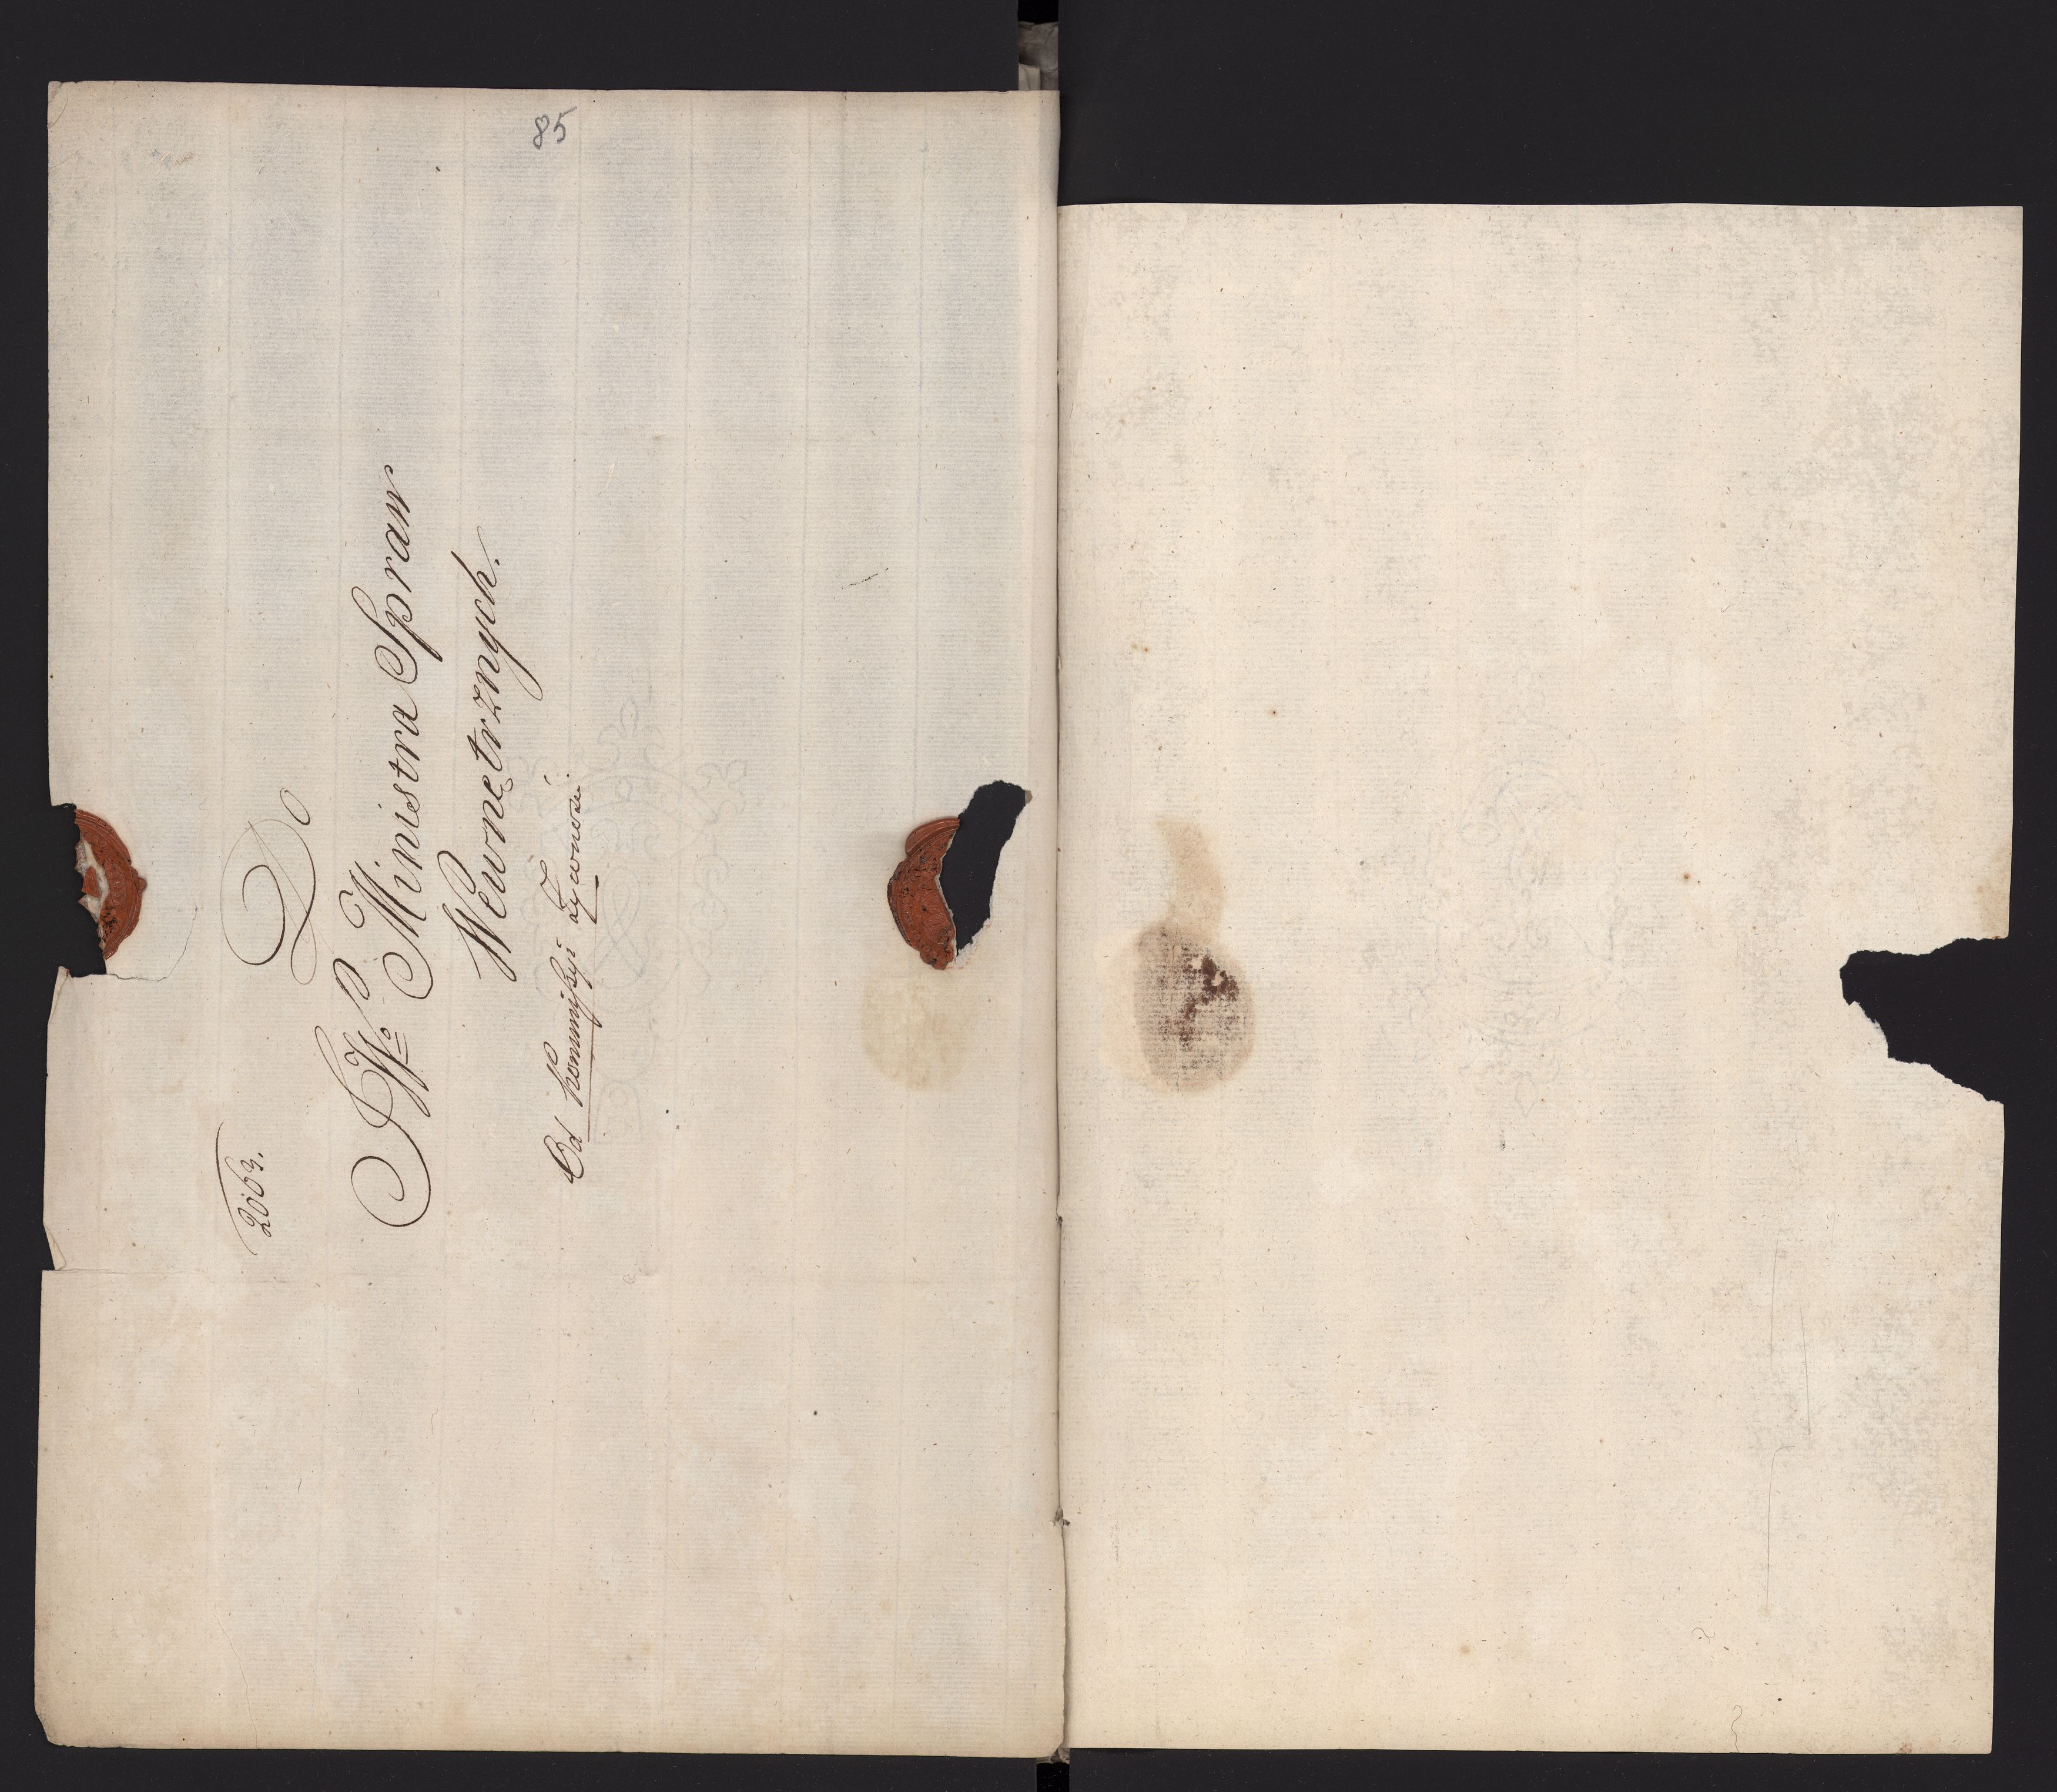 85
2063.
Do
JWo Ministra Spraw
Wewnętrznych.
Od Kommissyi Żywności.